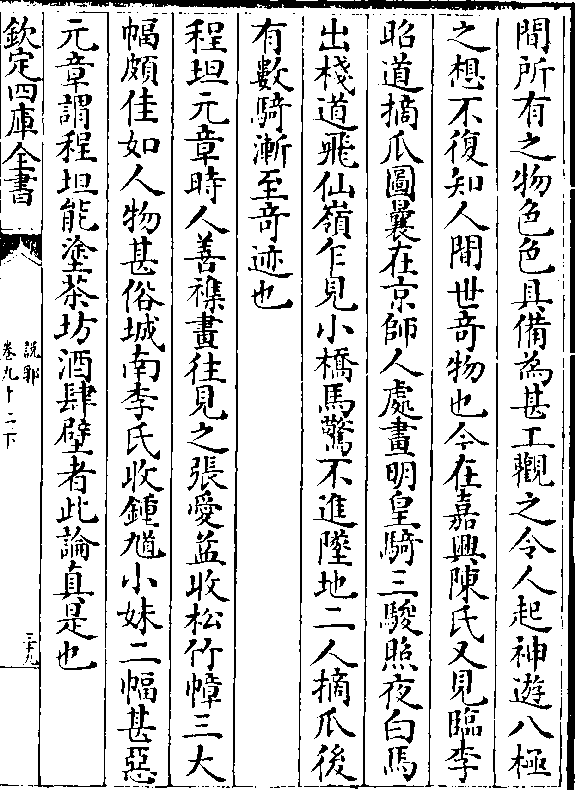 間所有之物色色具備為甚工觀之令人起神遊八極
之想不復知人間世竒物也今在嘉興陳氏又見臨李
昭道摘瓜圖曩在京師人處畫明皇騎三駿照夜白馬
出棧道飛仙嶺乍見小橋馬驚不進墜地二人摘瓜後
有數騎漸至竒迹也
程坦元章時人善襍畫往見之張愛益收松竹幛三大
幅頗佳如人物甚俗城南李氏收鍾馗小妹二幅甚惡
元章謂程坦能塗茶坊酒肆壁者此論真是也
欽定四庫全書
說郛
卷九十二下
三十九